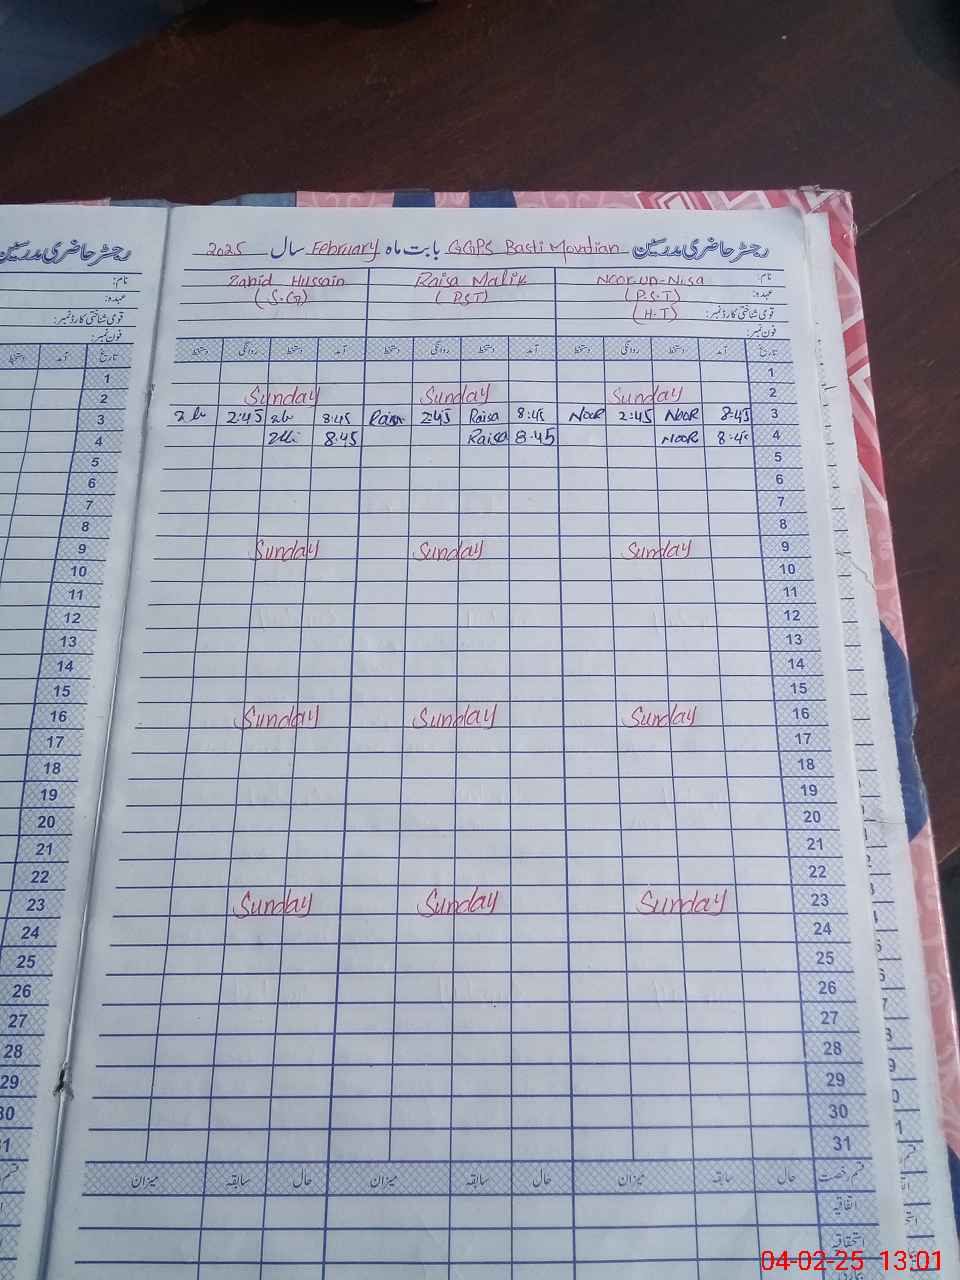 رجسٹر حاضری مدرسین GGPS Basti Movdian بابت ماہ February سال 2025
نام: Noor-un-Nisa Raisa Malik Zahid Hussain
عہدہ: (P.S.T) (P.S.T) (S.G)
قومی شناختی کارڈ نمبر: (H.T)
فون نمبر:
تاریخ آمد دستخط روانگی دستخط آمد دستخط روانگی دستخط آمد دستخط روانگی دستخط
1
2 Sunday Sunday Sunday
3 8:45 Noor 2:45 Noor 8:45 Raisa 2:45 Raisa 8:45 2:45
4 8:45 Noor 8:45 Raisa 8:45
5
6
7
8
9 Sunday Sunday Sunday
10
11
12
13
14
15
16 Sunday Sunday Sunday
17
18
19
20
21
22
23 Sunday Sunday Sunday
24
25
26
27
28
29
30
31
قسم رخصت حال سابقہ میزان حال سابقہ میزان حال سابقہ میزان
اتفاقیہ
استحقاقیہ
رجسٹر حاضری مدرسین
نام:
عہدہ:
قومی شناختی کارڈ نمبر:
فون نمبر:
تاریخ آمد دستخط
1
2
3
4
5
6
7
8
9
10
11
12
13
14
15
16
17
18
19
20
21
22
23
24
25
26
27
28
29
30
31
04-02-25 13:01